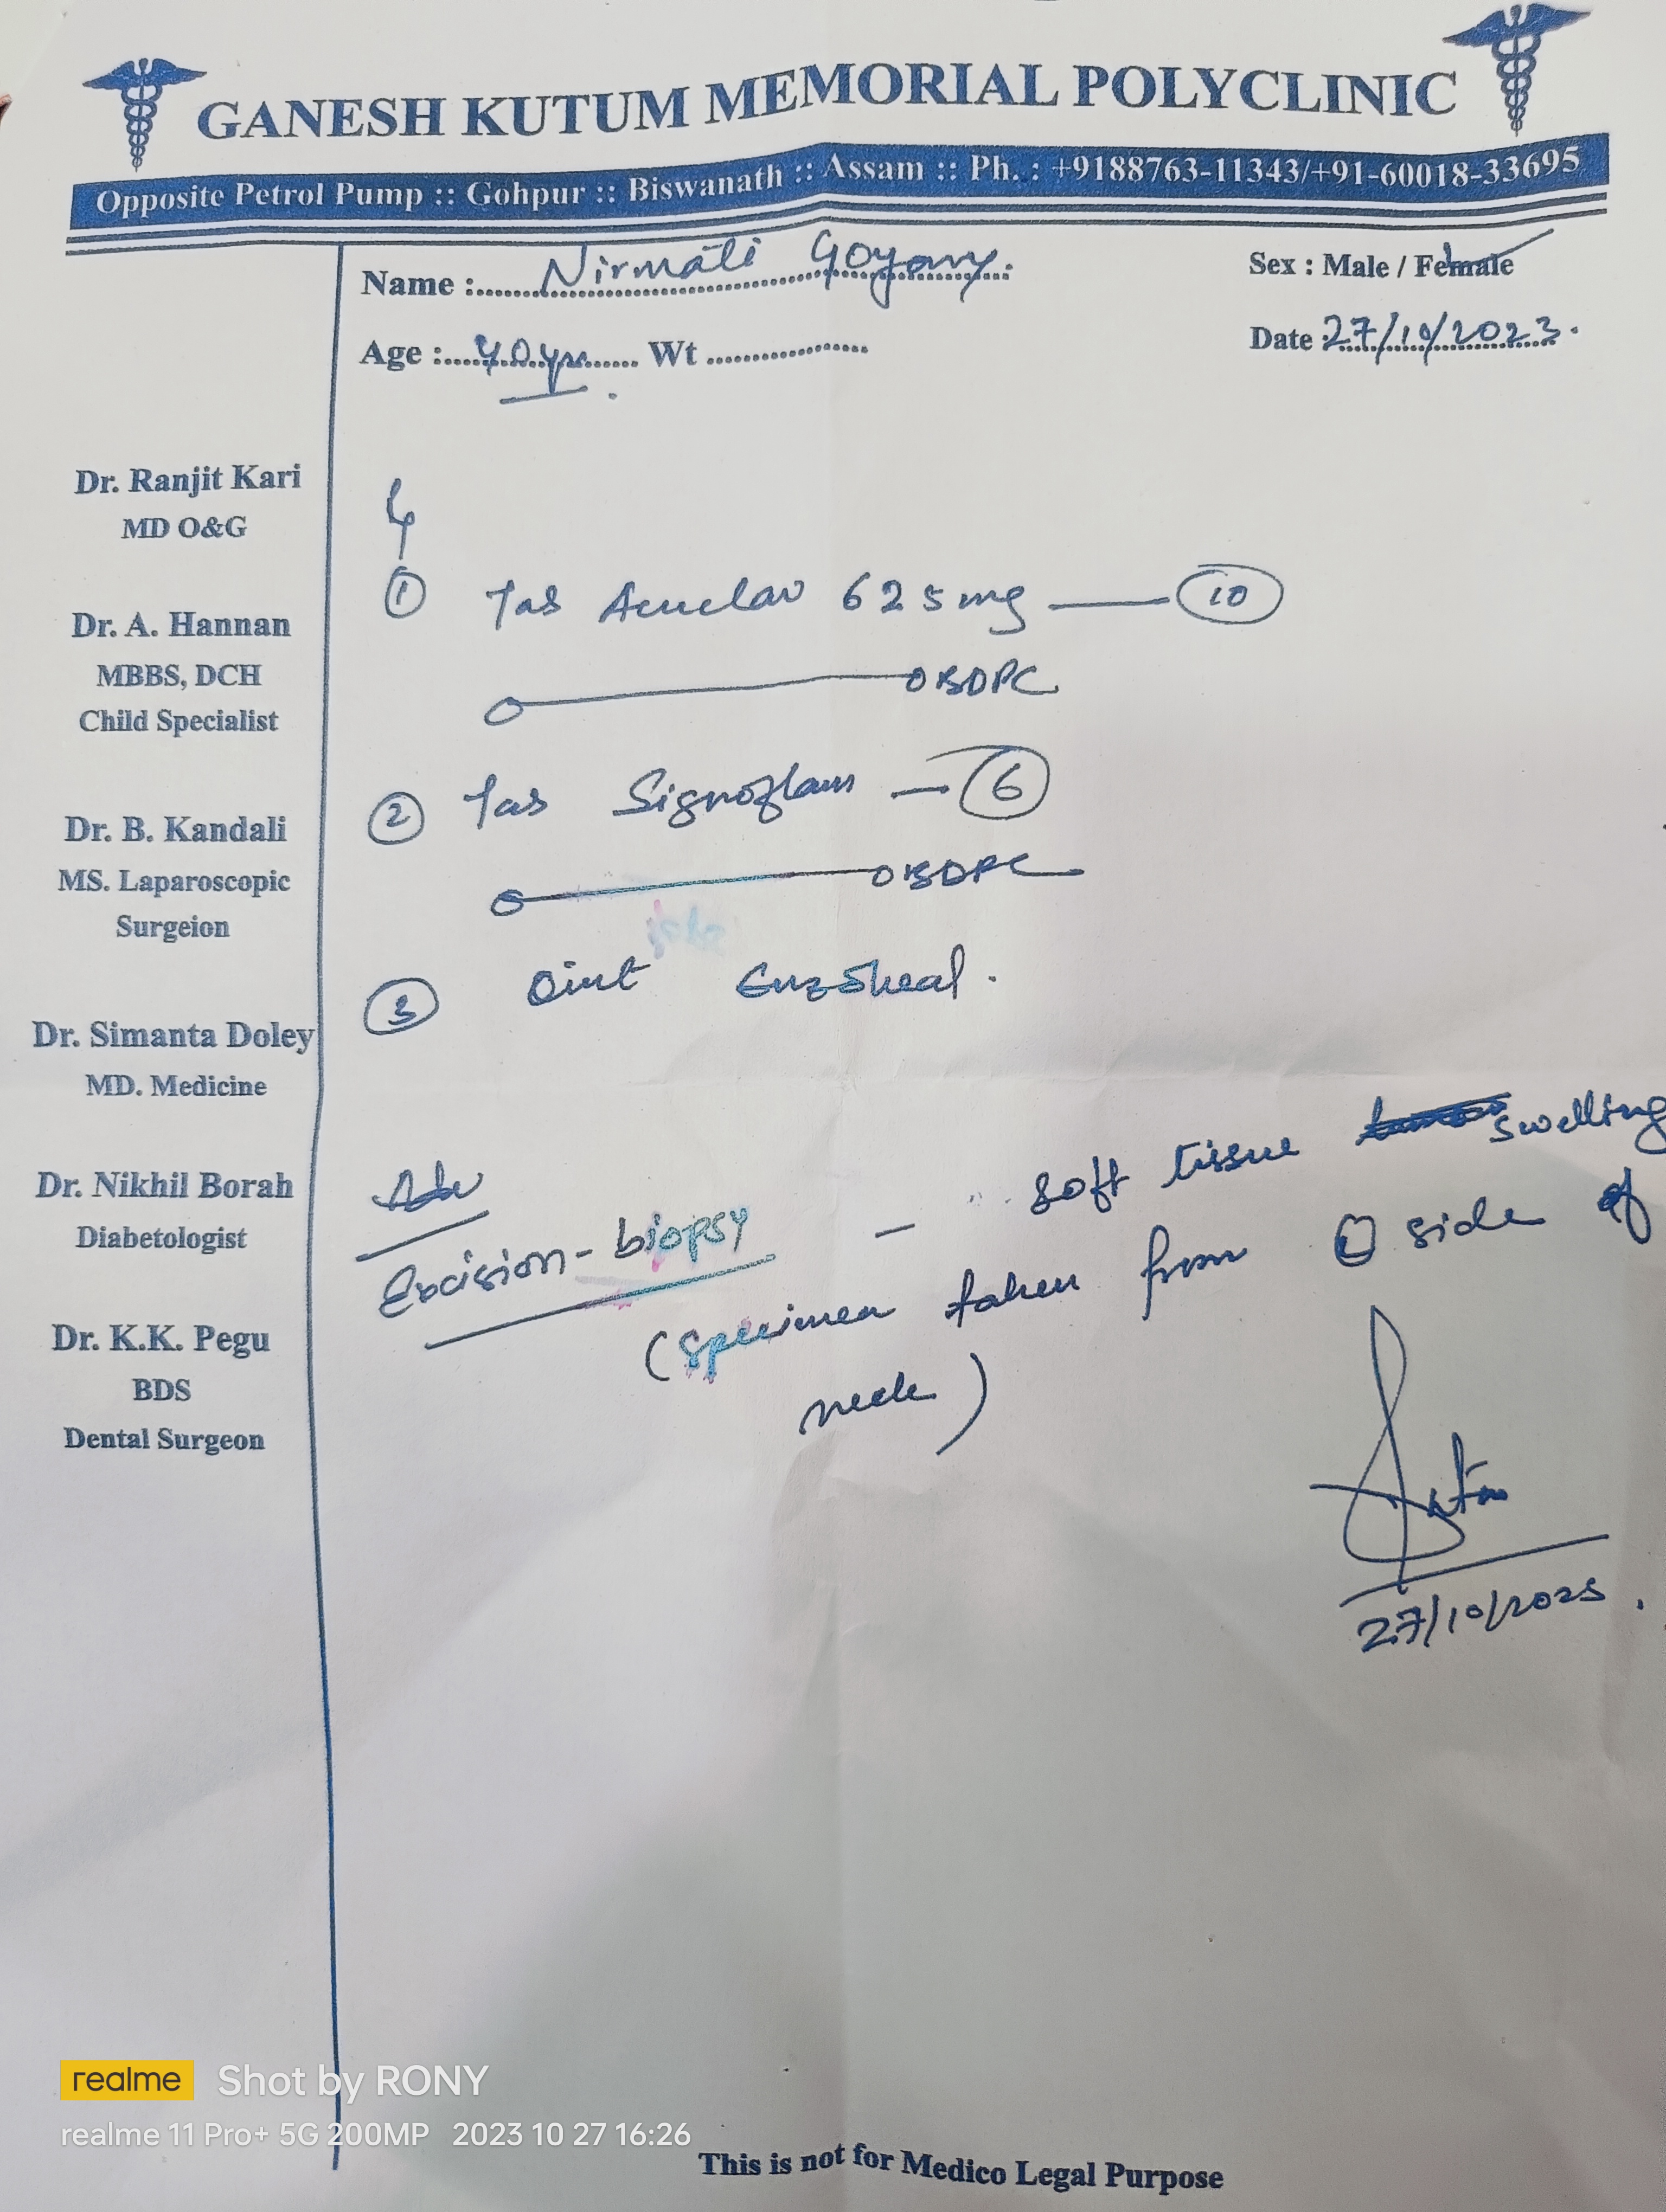 GANESH KUTUM MEMORIAL POLYCLINIC
Opposite Petrol Pump :: Gohpur :: Biswanath :: Assam :: Ph. : +9188763-11343/+91-60018-33695
Name : Nirmali
Sex : Male / Female
Age : 40 yrs Wt
Date : 27/10/2023.
Dr. Ranjit Kari
MD O&G
Dr. A. Hannan
MBBS, DCH
Child Specialist
Dr. B. Kandali
MS. Laparoscopic
Surgeion
Dr. Simanta Doley
MD. Medicine
Dr. Nikhil Borah
Diabetologist
Dr. K.K. Pegu
BDS
Dental Surgeon
① Tab Acuclav 625 mg — 10
0 — 0 BDPC
② Tab Signoflam — 6
0 — 0 BDPC
③ Oint Enzoheal.
Adv
Excision-biopsy — soft tissue swelling
(specimen taken from Ⓛ side of
neck)
27/10/2023.
realme Shot by RONY
realme 11 Pro+ 5G 200MP 2023 10 27 16:26
This is not for Medico Legal Purpose